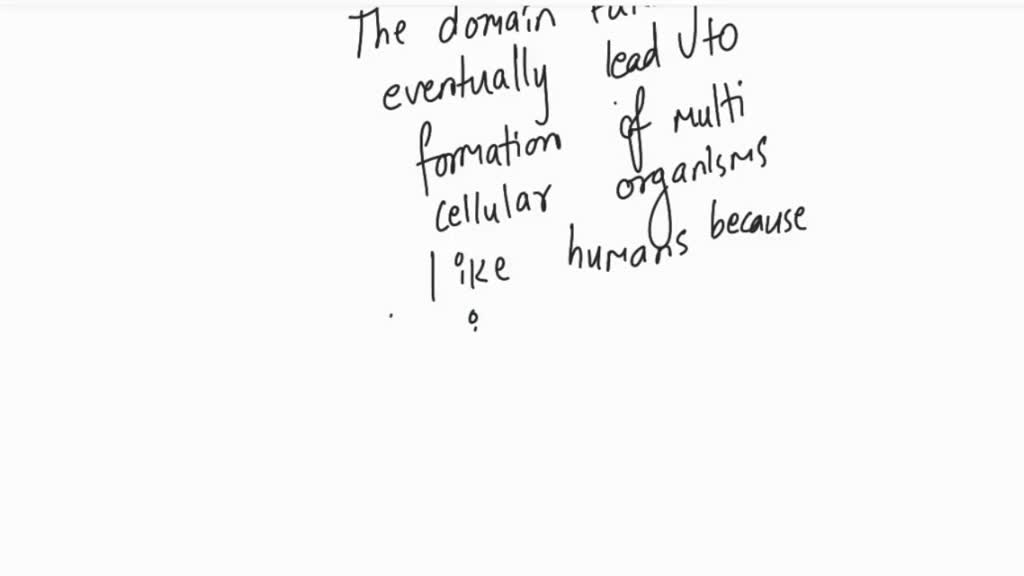 The domain
eventually lead to
formation of multi
cellular organisms
like humans because